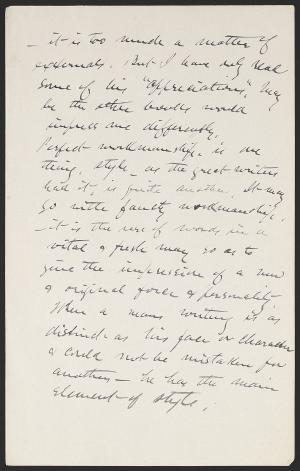 – it is too much a matter of
externals. But I have only read
some of his "Appreciations". May
be the other books would
impress me differently.
Perfect workmanship is one
thing, style – as the great writers
had it, is quite another. It may
go with faulty workmanship.
– it is the use of words in a
vital & fresh way so as to
give the impression of a new
& original force & personality.
When a mans writing is as
distinct as his face or character
& could not be mistaken for
another – he has the main
element of style.